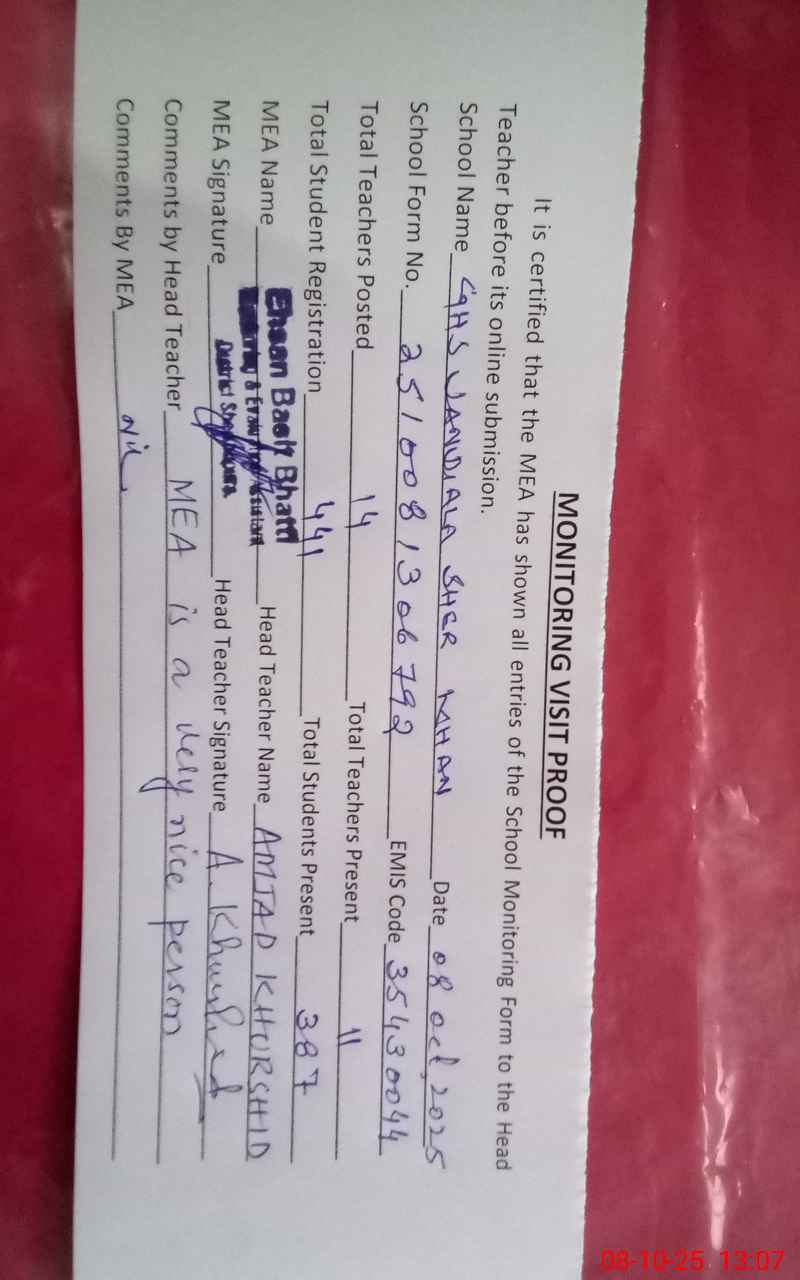 MONITORING VISIT PROOF
It is certified that the MEA has shown all entries of the School Monitoring Form to the Head
Teacher before its online submission.
School Name GHS JANDIALA SHER KHAN Date 08 oct, 2025
School Form No. 251008 1306792 EMIS Code 35430044
Total Teachers Posted 14 Total Teachers Present 11
Total Student Registration 441 Total Students Present 387
MEA Name Ehsan Bhatti Head Teacher Name AMJAD KHURSHID
& Assistant
District
MEA Signature Head Teacher Signature A. Khurshid
Comments by Head Teacher MEA is a very nice person
Comments By MEA Nil
08-10-25 13:07